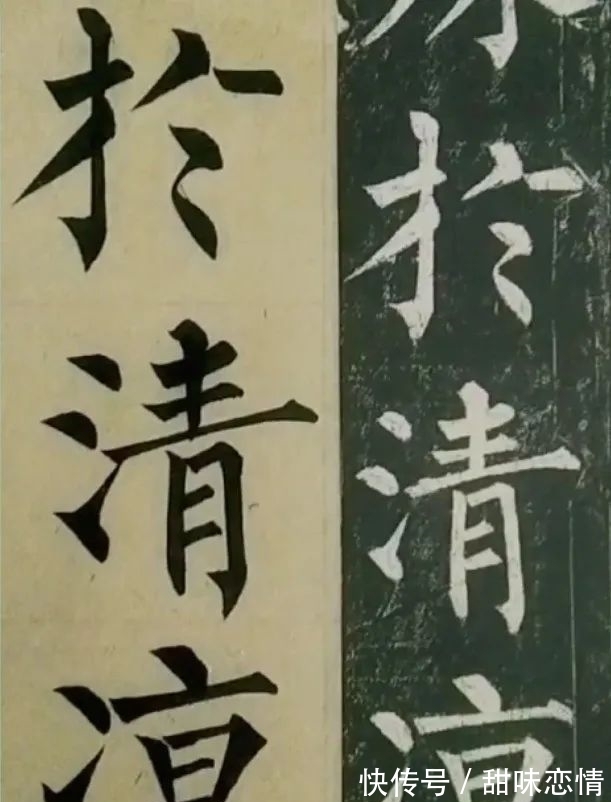 於清
於清
快传号 / 甜味恋情